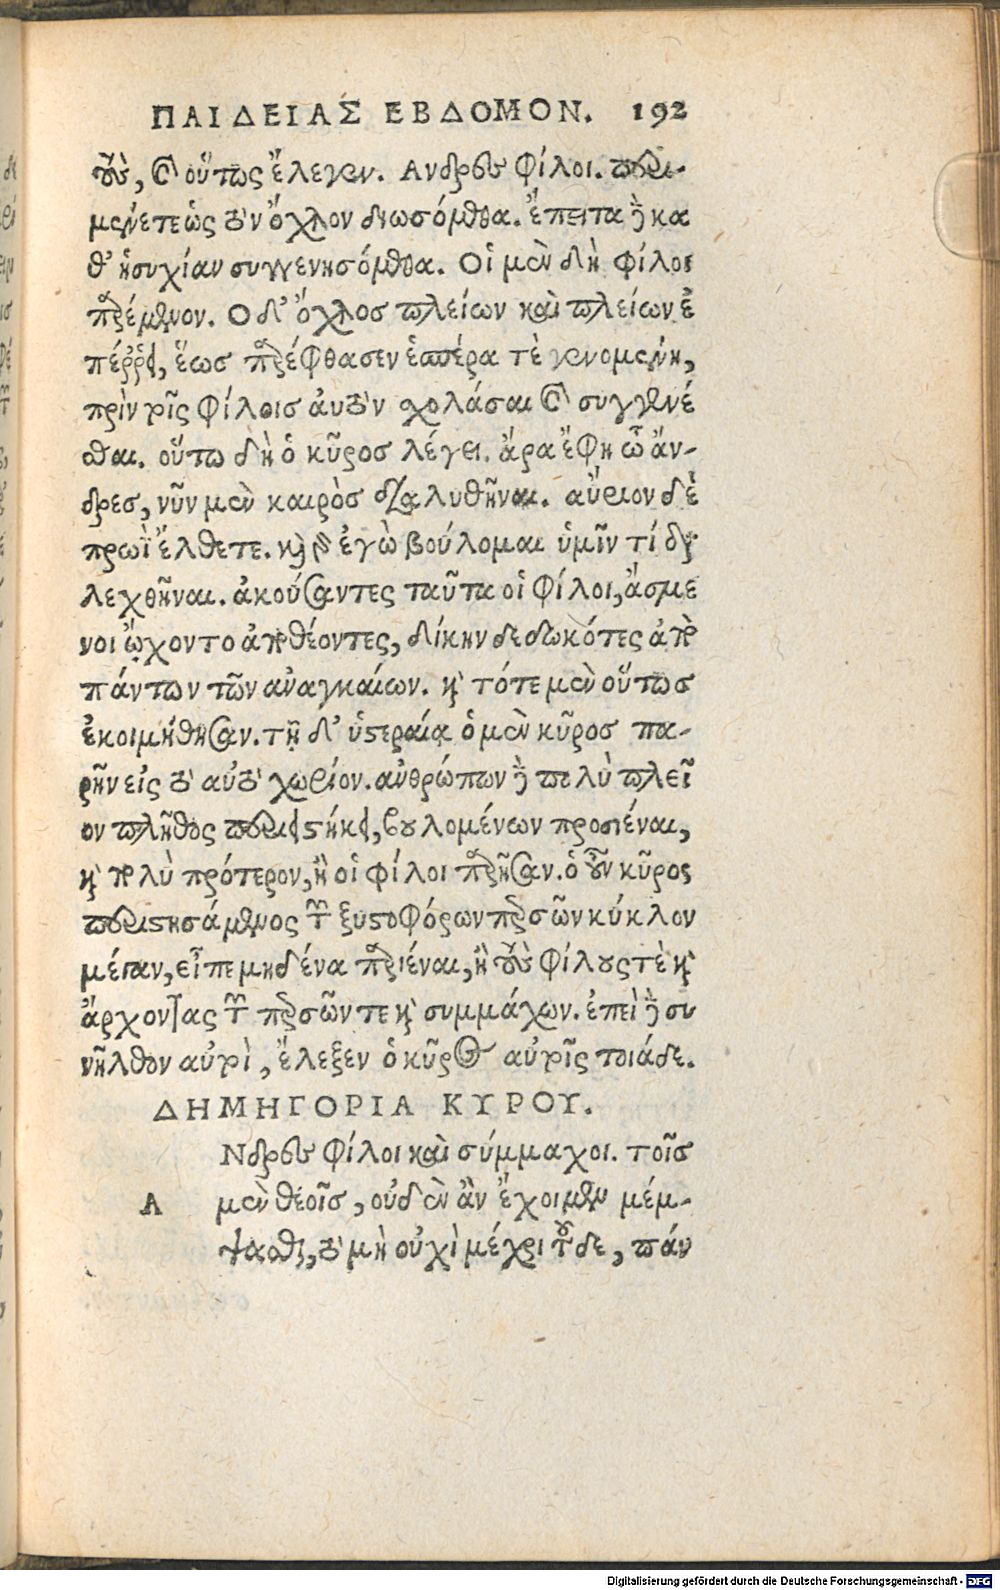 ΠΑΙΔΕΙΑΣ ΕΒΔΟΜΟΝ. 192
τοὺς, καὶ οὕτως ἔλεγεν. Ανδρες φίλοι. περι-
μένετε ἕως τὸν ὄχλον διωσόμεθα. ἔπειτα δὲ κα
θ' ἡσυχίαν συγγενησόμεθα. Οἱ μὲν δὴ φίλοι
περιέμενον. Ο δ' ὄχλος πλείων καὶ πλείων ἐ
πέρρει, ἕως περιέφθασεν ἑσπέρα τὲ γενομένη,
πρὶν τοῖς φίλοις αὐτὸν σχολάσαι καὶ συγγενέ
σθαι. οὕτω δὴ ὁ κῦρος λέγει. ἆρα ἔφη ὦ ἄν-
δρες, νῦν μὲν καιρὸς διαλυθῆναι. αὔριον δὲ
πρωῒ ἔλθετε. καὶ γὰρ ἐγὼ βούλομαι ὑμῖν τί δια
λεχθῆναι. ἀκούσαντες ταῦτα οἱ φίλοι, ἄσμε
νοι ᾤχοντο ἀποθέοντες, δίκην δεδωκότες ἀπὸ
πάντων τῶν αναγκαίων. καὶ τότε μὲν οὕτως
ἐκοιμήθησαν. τῇ δ' ὑστεραίᾳ ὁ μὲν κῦρος πα-
ρῆν εἰς τὸ αὐτὸ χωρίον. ανθρώπων δὲ πολὺ πλεῖ
ον πλῆθος περιειστήκει, βουλομένων προσιέναι,
καὶ πολὺ πρότερον, ἢ οἱ φίλοι παρῆσαν. ὁ οὖν κῦρος
περιστησάμενος τῶν ξυστοφόρων περσῶν κύκλον
μέγαν, εἶπε μηδένα παριέναι, ἢ τοὺς φίλους τὲ καὶ
ἄρχοντας τῶν περσῶν τε καὶ συμμάχων. ἐπεὶ δὲ συ
νῆλθον αὐτοὶ, ἔλεξεν ὁ κῦρος αὐτοῖς τοιάδε.
ΔΗΜΗΓΟΡΙΑ ΚΥΡΟΥ.
Νδρες φίλοι καὶ σύμμαχοι. τοῖς
Α μὲν θεοῖς, οὐδὲν ἂν ἔχοιμεν μέμ-
ψασθαι, τὸ μὴ οὐχὶ μέχρι τοῦδε, πάν
Digitalisierung gefördert durch die Deutsche Forschungsgemeinschaft - DFG